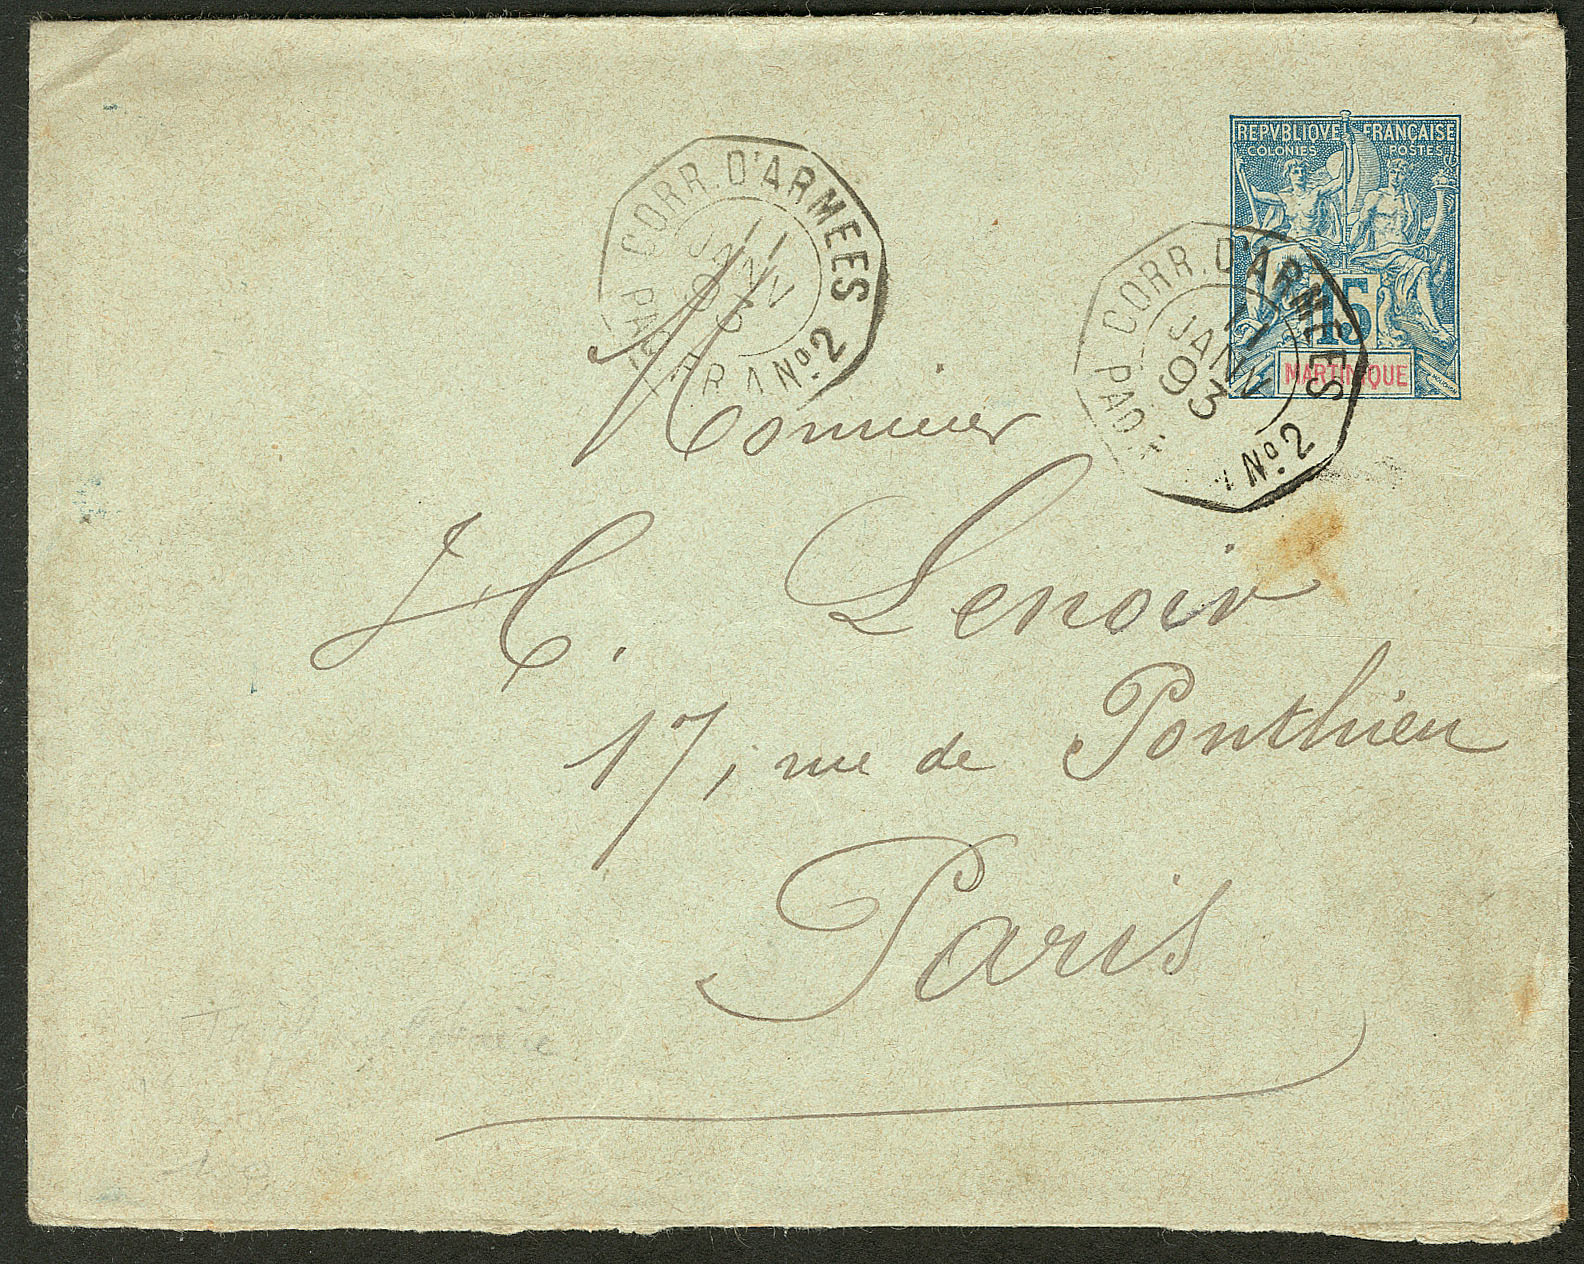 REPVBLIQVE FRANÇAISE
COLONIES POSTES
15
MARTINIQUE
CORR. D'ARMEES
11
JANV
93
Nº. 2
CORR. D'ARMEES
11
JANV
93
PAQ
Nº. 2
Monsieur
H. Lenoir
17, rue de Ponthieu
Paris